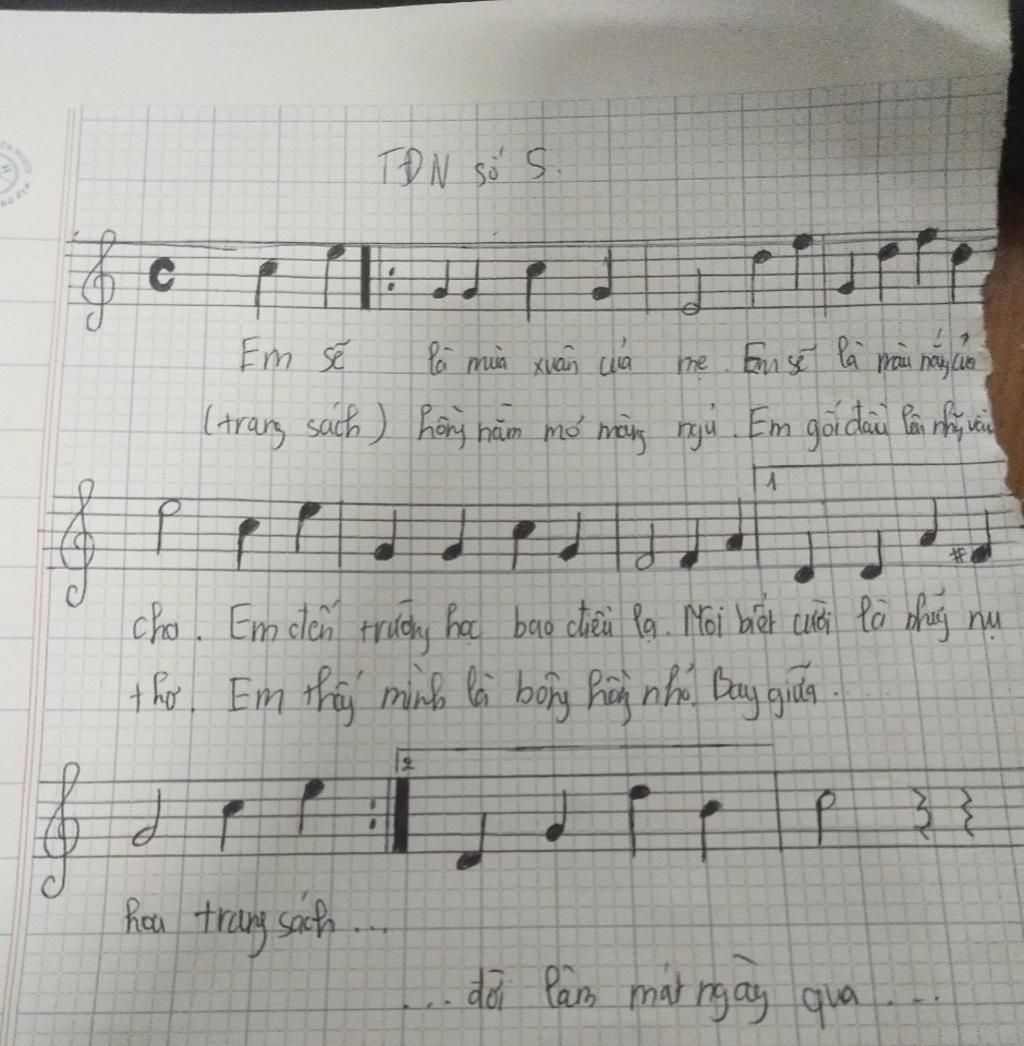 TĐN số 5.
Em sẽ là mùa xuân của mẹ. Em sẽ là màu nắng của
(trang sách) hồng nằm mơ màng ngủ. Em gối đầu lên những vần
1
cho. Em đến trường học bao điều lạ. Môi biết cười là những nụ
thơ. Em thấy mình là bông hồng nhỏ. Bay giữa
2
hoa trang sách...
... đời làm mát ngày qua ...